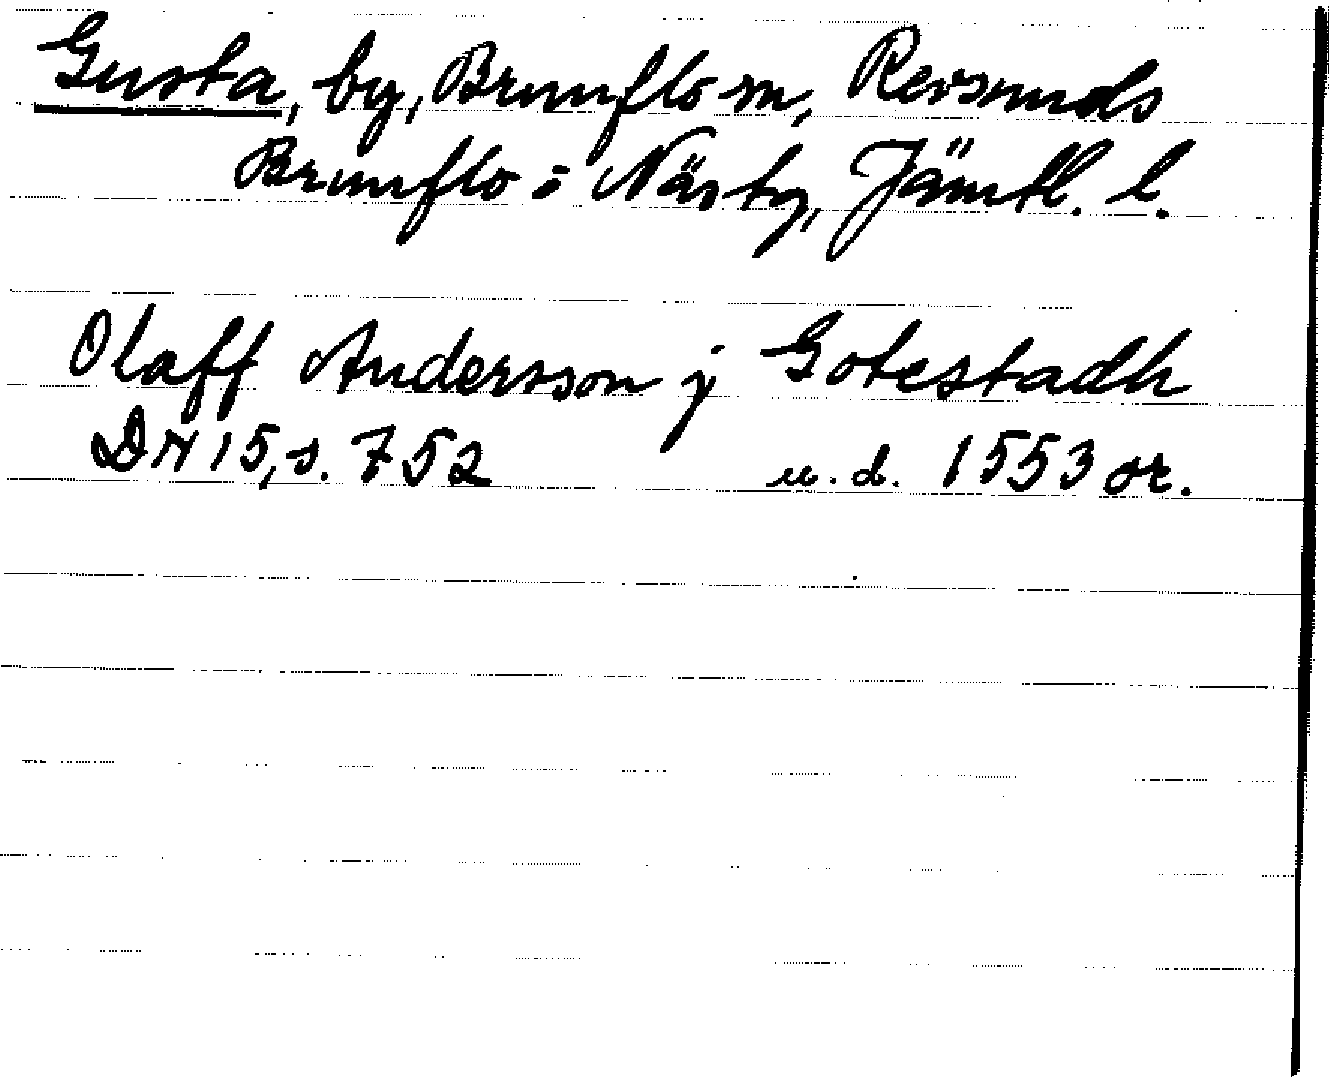 Gusta, by, Brunflo sn, Revsunds
Brunflo o Näs tg, Jämtl. l.
Olaff Andersson j Gotestadh
DN 15, s. 752 u. d. 1553 or.